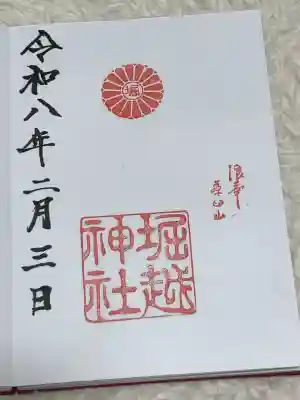 堀
浪華
茶臼山
堀越
神社
令和八年二月三日